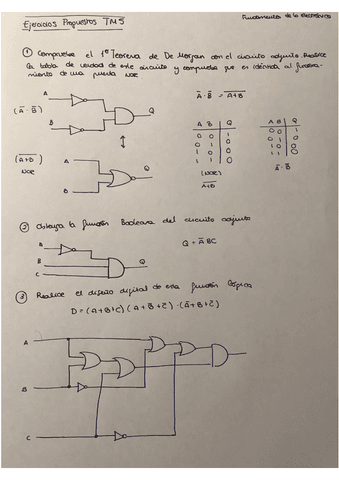 Ejercicios Propuestos TM5
Fundamentos de la electrónica
① Compruebe el 1º Teorema de De Morgan con el circuito adjunto. Realice
la tabla de verdad de este circuito y compruebe que es idéntica al funciona-
miento de una puerta NOR
A
(Ā · B̄)
B
Q
Ā · B̄ = \overline{A+B}
A B Q
0 0 1
0 1 0
1 0 0
1 1 0
(NOR)
\overline{A+B}
A B Q
0 0 1
0 1 0
1 0 0
1 1 0
Ā · B̄
(\overline{A+B})
NOR
A
B
Q
② Obtenga la función Booleana del circuito adjunto
A
B
C
Q
Q = ĀBC
③ Realice el diseño digital de esta función lógica
D = (A+B+C) (A+B̄+C̄) · (Ā+B+C̄)
A
B
C